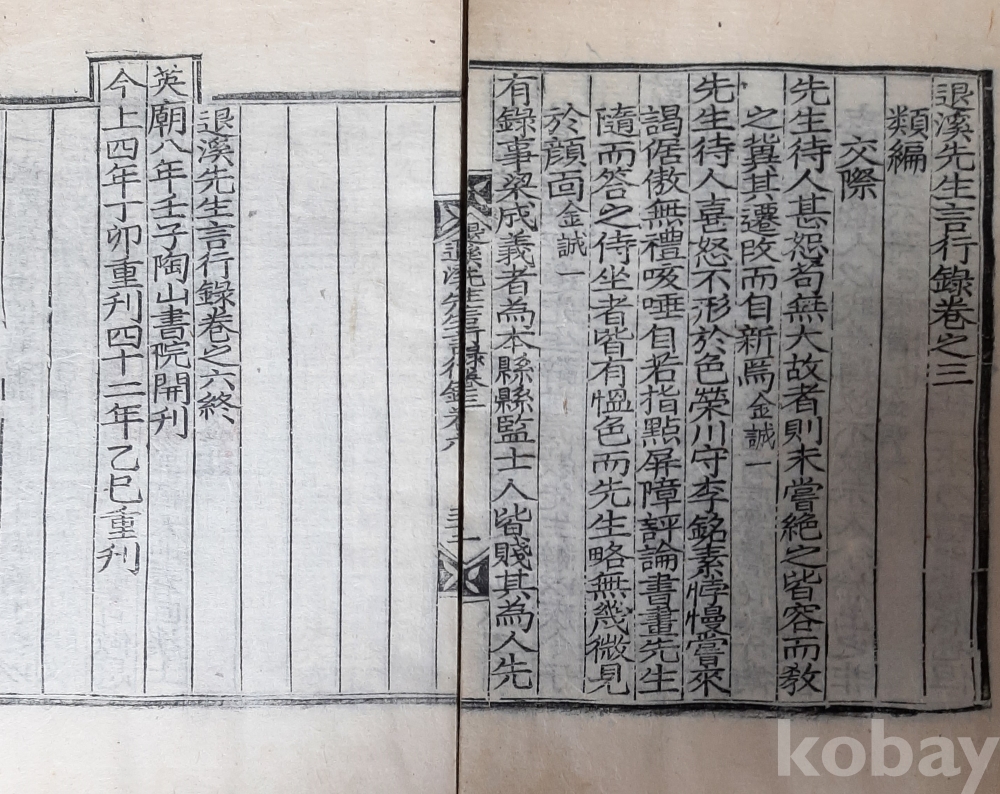 退溪先生言行錄卷之三
類編
交際
先生待人甚恕苟無大故者則未嘗絶之皆容而敎
之冀其遷改而自新焉金誠一
先生待人喜怒不形於色榮川守李銘素悖慢嘗來
謁倨傲無禮咳唾自若指點屛障評論書畫先生
隨而答之侍坐者皆有慍色而先生略無幾微見
於顔面金誠一
有錄事梁成義者為本縣縣監士人皆賤其為人先
退溪先生言行錄卷之六終
英廟八年壬子陶山書院開刊
今上四年丁卯重刊四十二年乙巳重刊
kobay